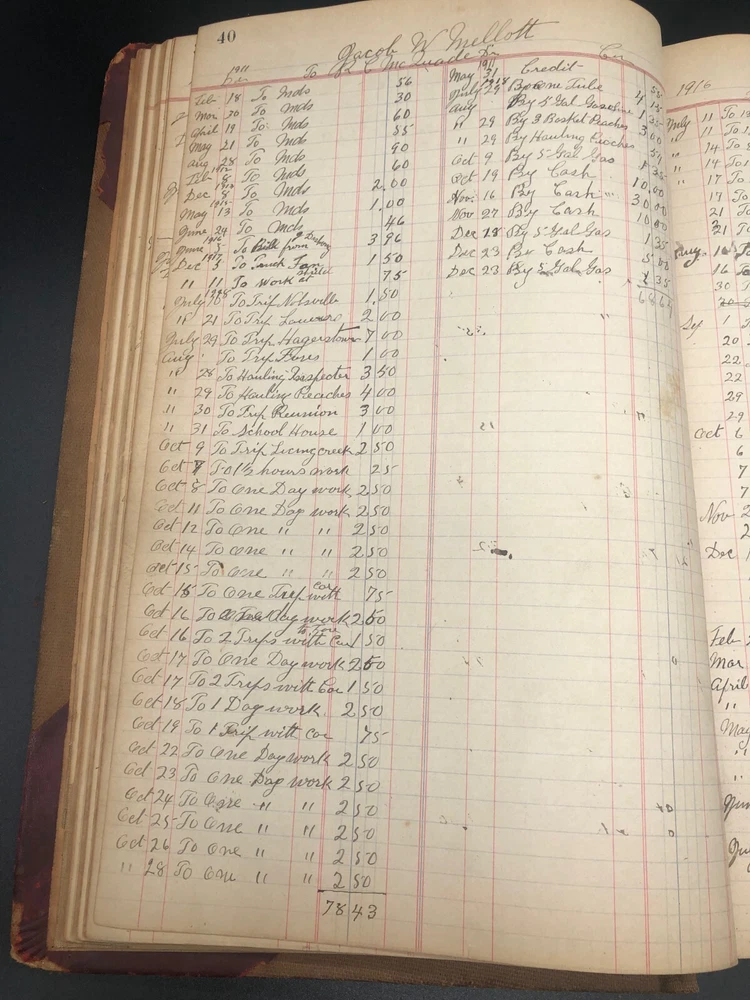 40
Jacob W Mellott
1911 To R C McQuade Dr
Feb 18 To Mds 56
Mar 20 To Mds 30
April 19 To Mds 60
May 21 To Mds 55
Aug 28 To Mds 90
1912
Feb 8 To Mds 60
Dec 8 To Mds 2.00
May 13 To Mds 1.00
June 24 To Mds 46
1916
June 5 To Bill from 3 96
1917
Dec 5 To 1 50
" 11 To work at 75
1918
July 10 To Trip Nolsville 1.50
" 21 To Trip 2 00
July 29 To Trip Hagerstown 7 00
Aug To Trip 1 00
" 28 To Hauling Inspecter 3 50
" 29 To Hauling Peaches 4 00
" 30 To Trip Reunion 3 00
" 31 To School House 1 00
Oct 9 To Trip Licingcreek 2 50
Oct 7 To 1½ hours work 25
Oct 8 To One Day work 2 50
Oct 11 To One Day work 2 50
Oct 12 To One " " 2 50
Oct 14 To One " " 2 50
Oct 15 To One " " 2 50
Oct 15 To One Trip with car 75
Oct 16 To Day work 2 50
Oct 16 To 2 Trips with Car 1 50
Oct 17 To One Day work 2 50
Oct 17 To 2 Trips with Car 1 50
Oct 18 To 1 Day work 2 50
Oct 19 To 1 Trip with car 75
Oct 22 To One Day work 2 50
Oct 23 To One Day work 2 50
Oct 24 To One " " 2 50
Oct 25 To One " " 2 50
Oct 26 To One " " 2 50
" 28 To One " " 2 50
78 43
Cr
1911
May 31 Credit
1918
July 29 By one Tube 4 15
Aug By 5 Gal Gasoline 1 35
" 29 By 3 Basket Peaches 3 00
" 29 By Hauling Peaches
Oct 9 By 5 Gal Gas 1 35
Oct 19 By Cash 10.00
Nov. 16 By Cash 30 00
Nov 27 By Cash 10 00
Dec 18 By 5 Gal Gas 1 35
Dec 23 By Cash 5 00
Dec 23 By 5 Gal Gas 1 35
1916
July 11 To
" 11 To
" 14 To
" 14 To
" 17 To
17 To
21 To
21 To
Aug
16 To
30 To
Sep 1
20
22
22
29
29
Oct 6
6
7
7
Nov 2
2
Dec 1
Feb
Mar
April
"
May
"
"